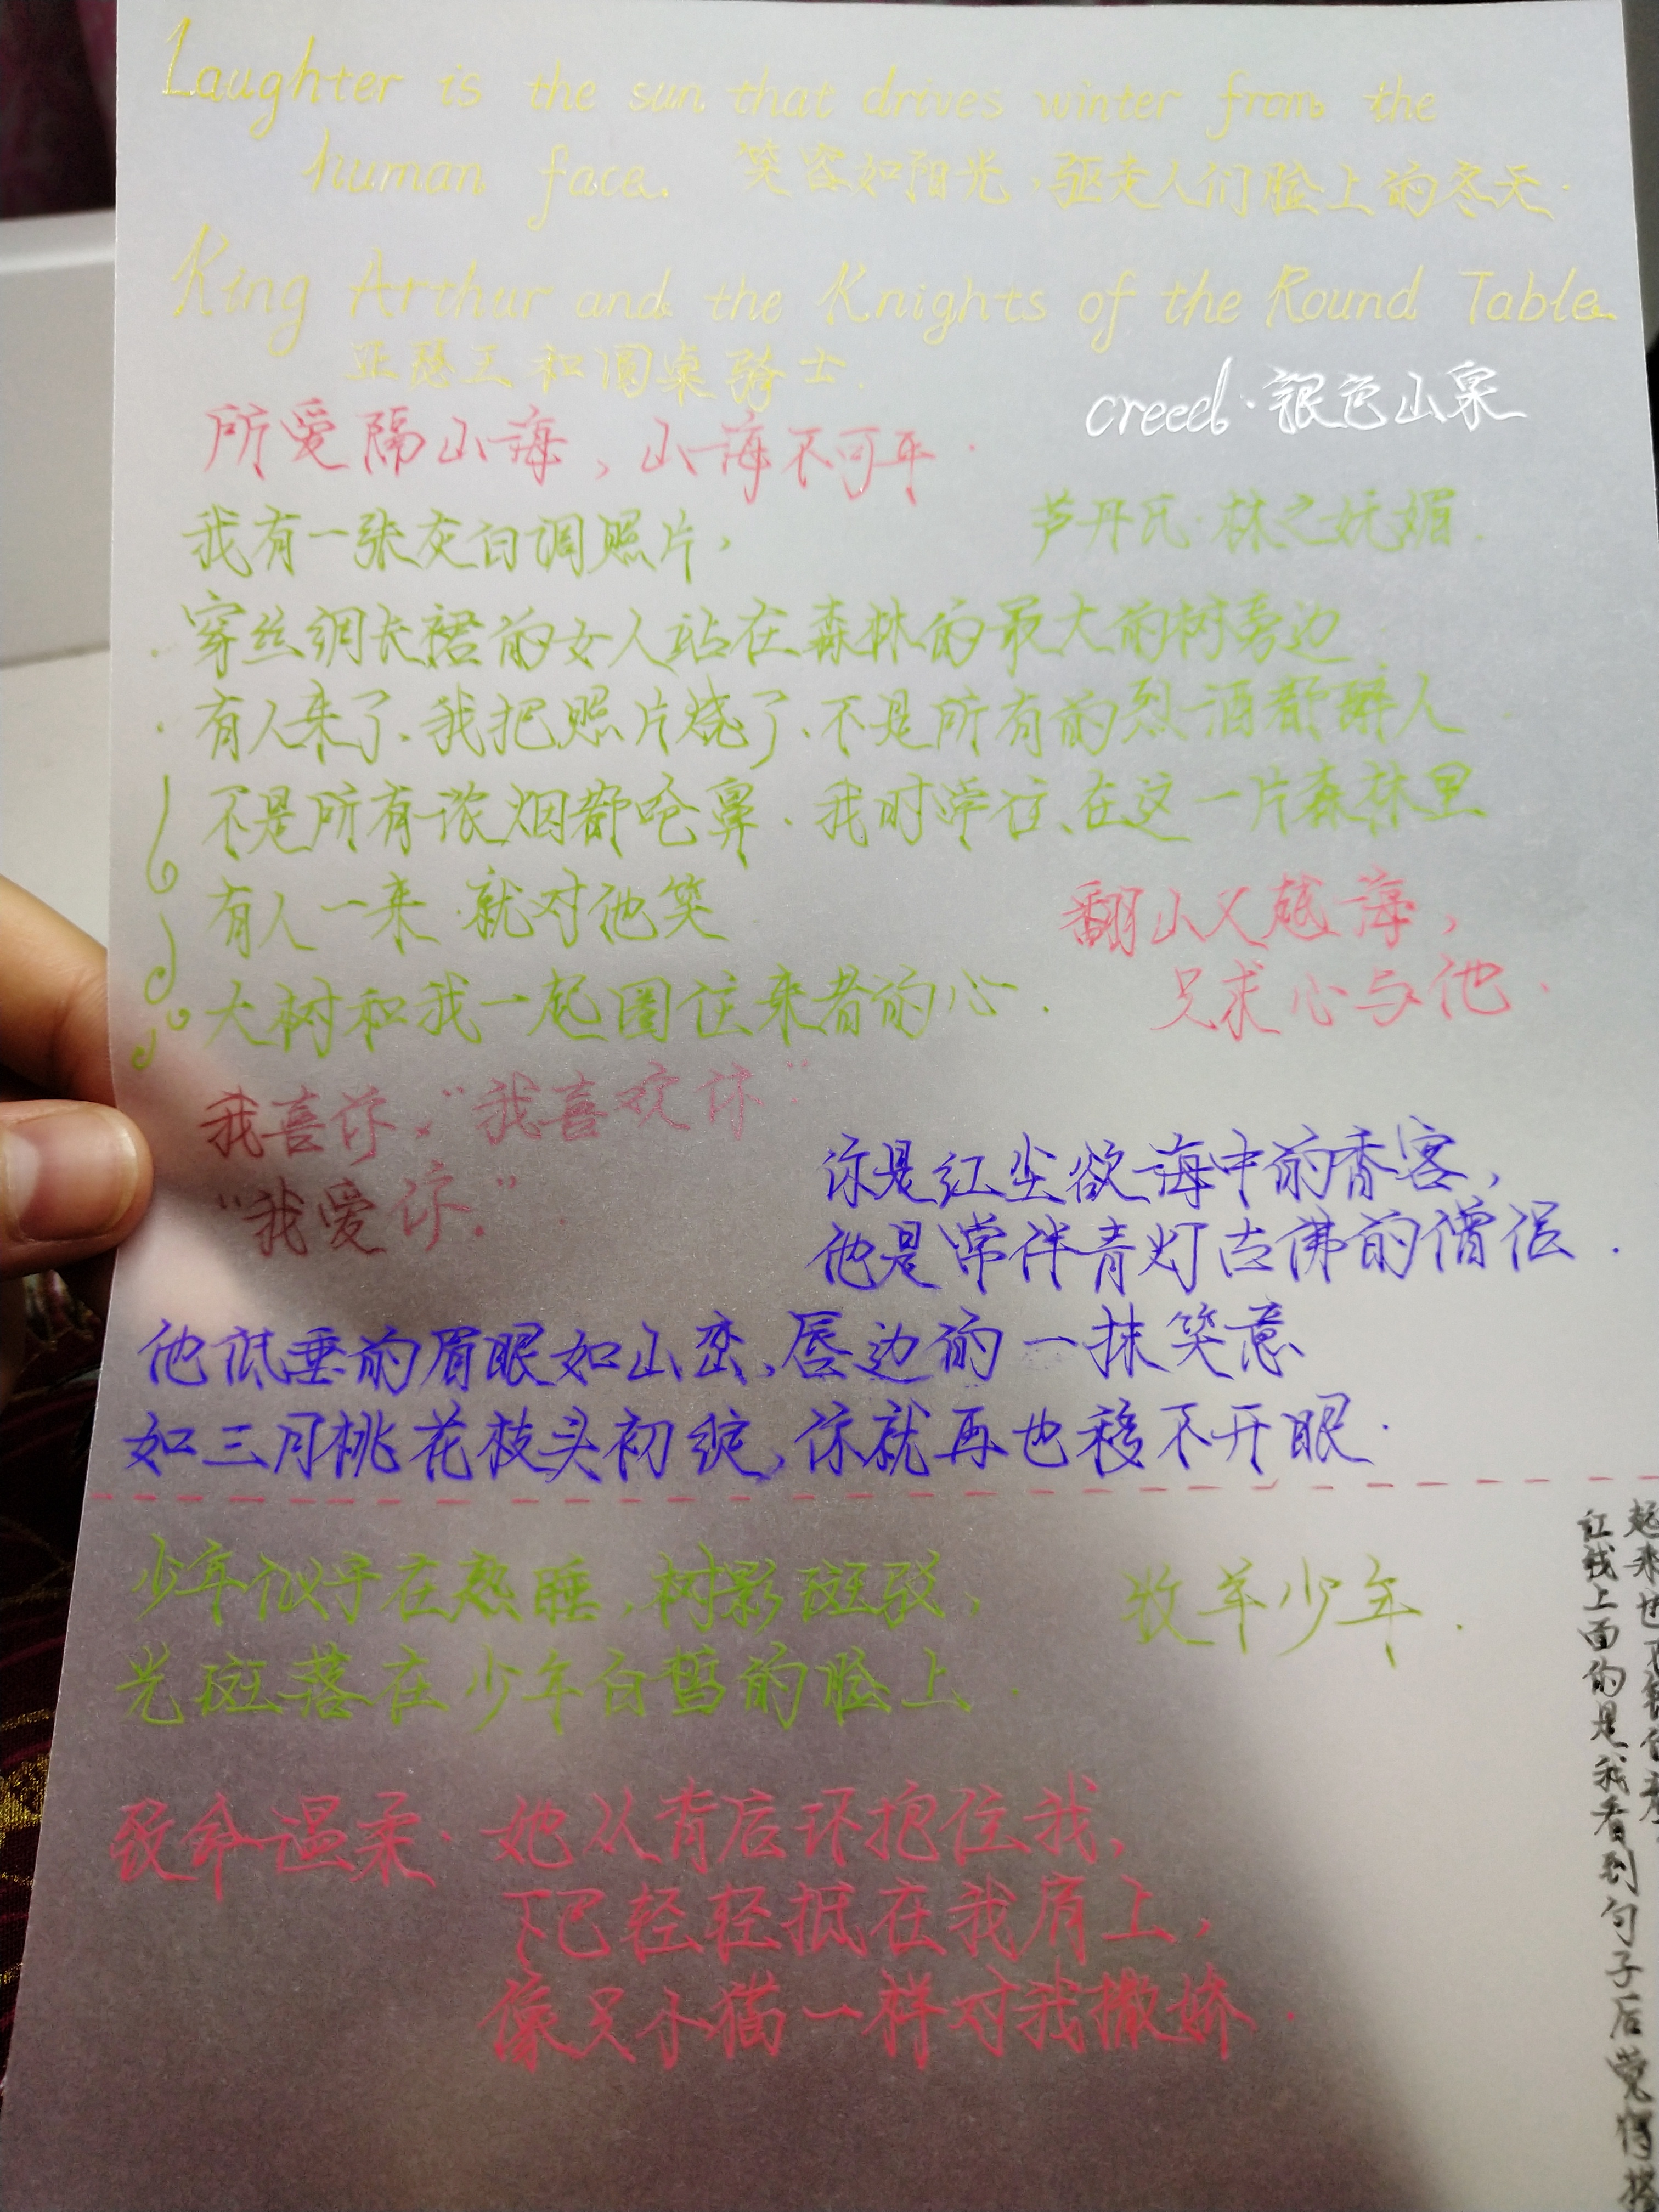 Laughter is the sun that drives winter from the
human face. 笑容如阳光，驱走人们脸上的冬天.
King Arthur and the Knights of the Round Table
亚瑟王和圆桌骑士.
creed·银色山泉
所爱隔山海，山海不可平.
我有一张灰白调照片，
芦丹氏·林之妩媚.
穿丝绸长裙的女人站在森林的最大的树旁边
有人来了、我把照片烧了、不是所有的烈酒都醉人
不是所有浓烟都呛鼻. 我时常往、在这一片森林里
有人一来 就对他笑
大树和我一起圈住来者的心.
翻山又越海，
只求心与他.
我喜你，“我喜欢你”
“我爱你.”
你是红尘欲海中的香客，
他是常伴青灯古佛的僧侣.
他低垂的眉眼如山峦、唇边的一抹笑意
如三月桃花枝头初绽，你就再也移不开眼.
少年似乎在熟睡，树影斑驳，
牧羊少年.
光斑落在少年白皙的脸上.
致命温柔·她从背后环抱住我，
下巴轻轻抵在我肩上，
像只小猫一样对我撒娇.
红线上面的是我看到句子后觉得搭
起来也不错的